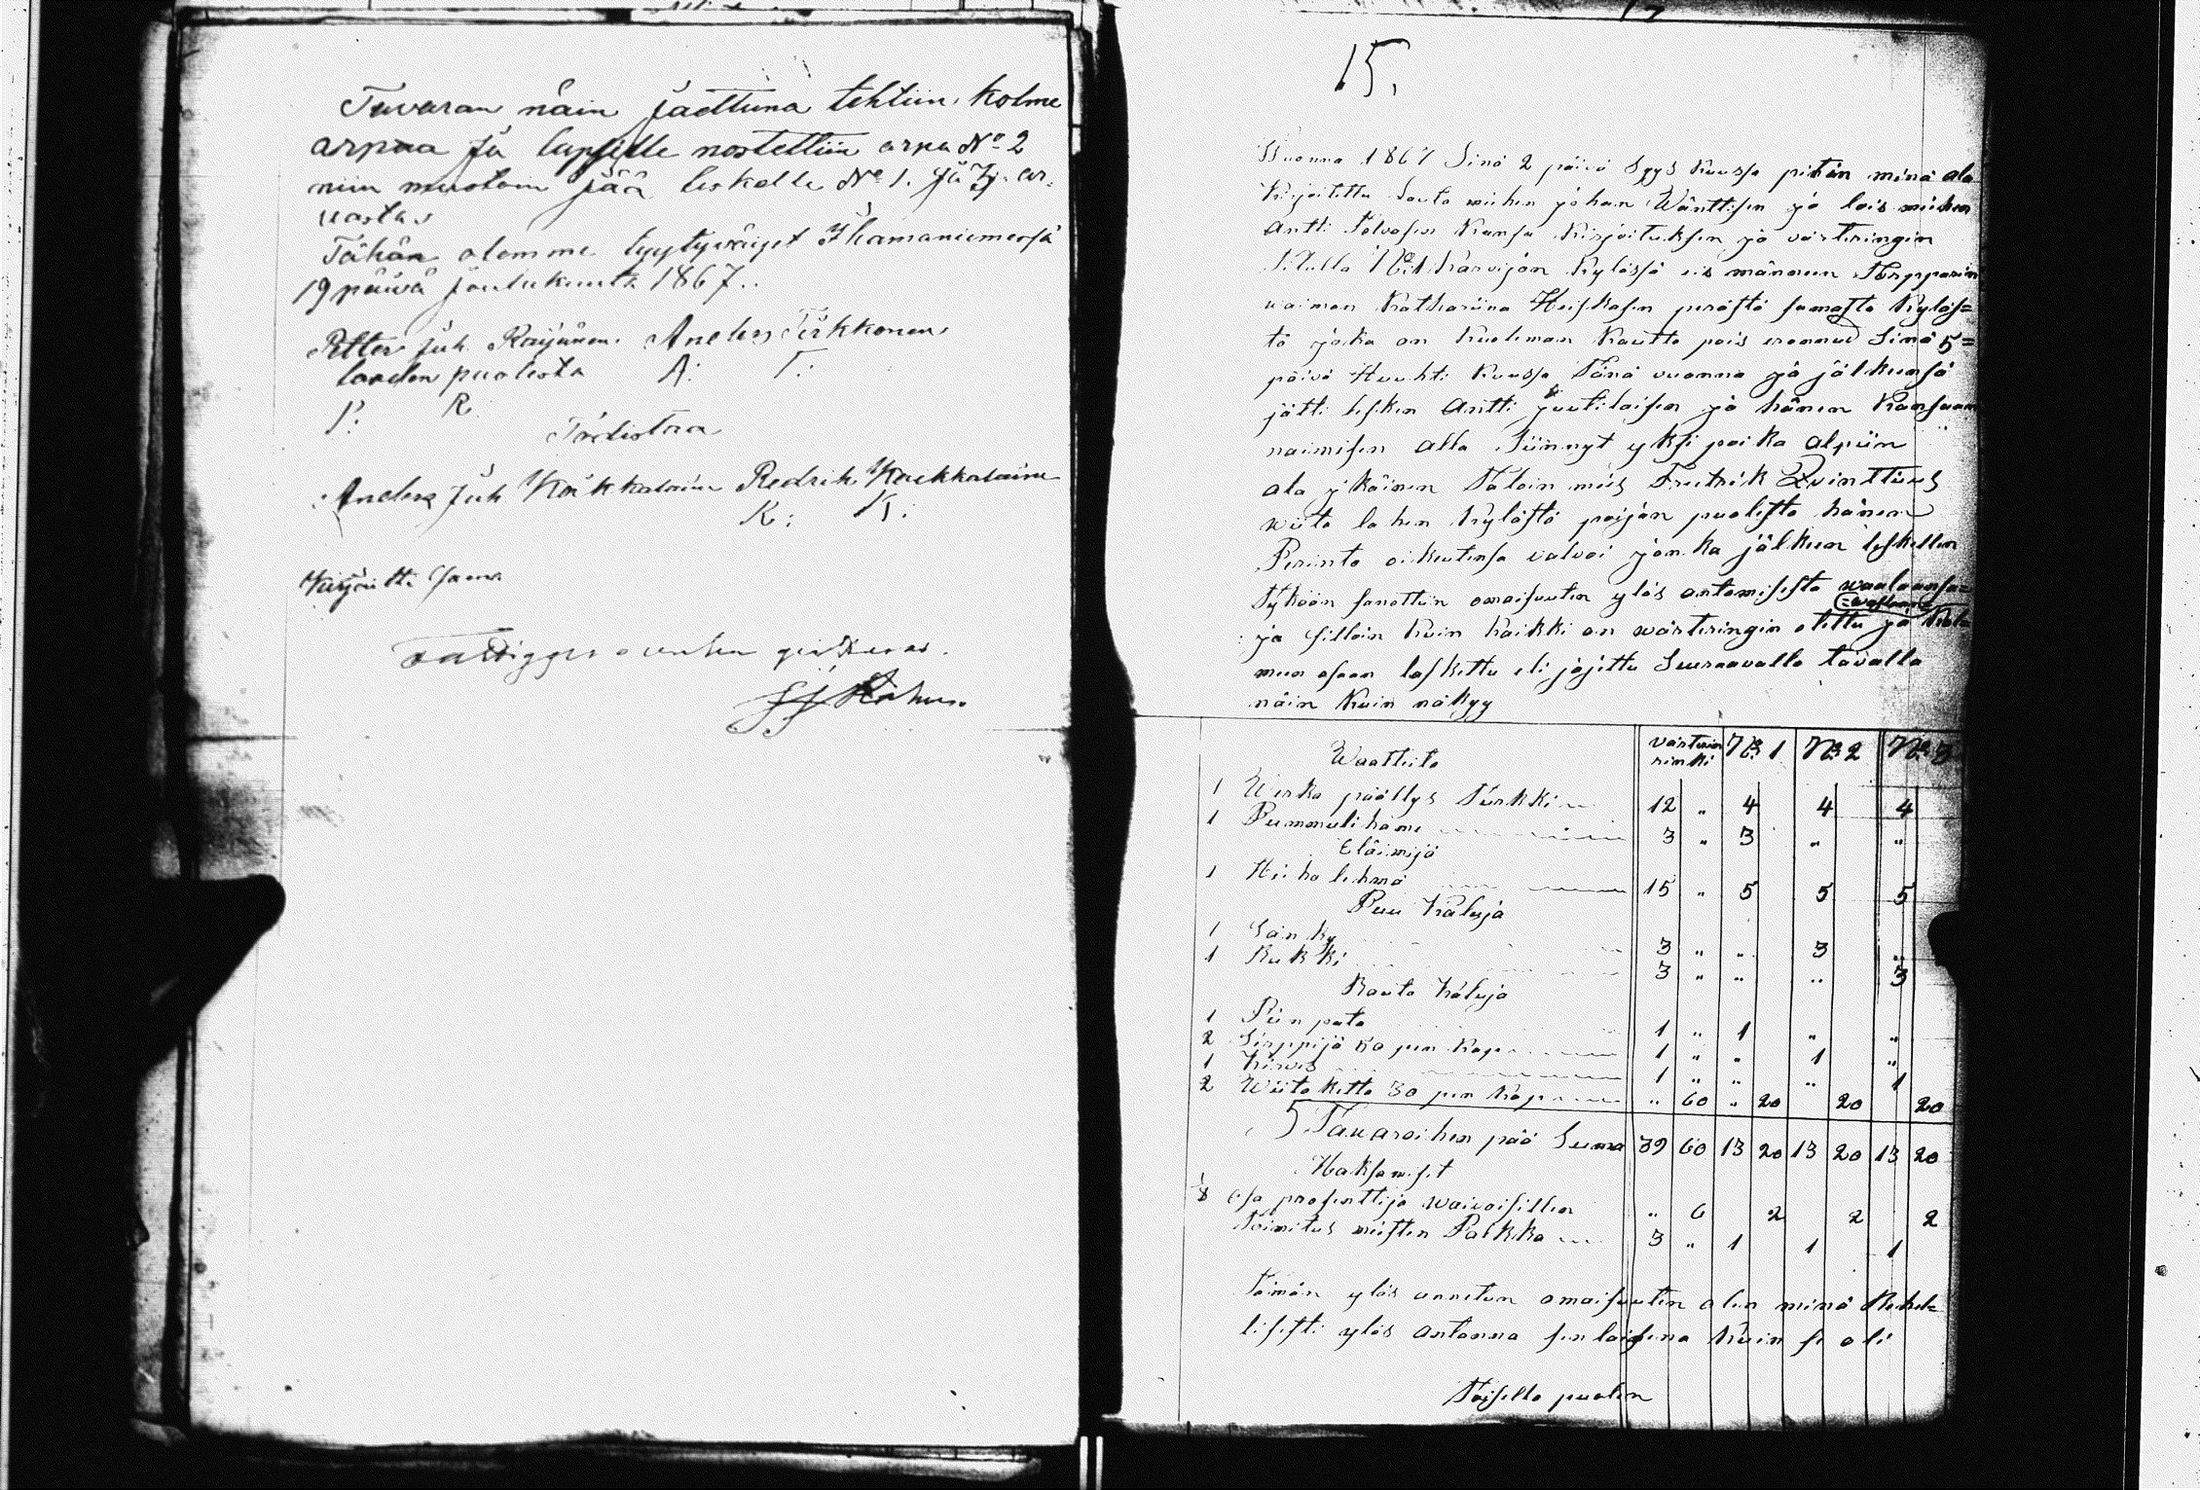 Tavaran näin jaettuna tehtiin kolme
arpaa ja lapsille nostettiin arpa No 2
niin muotoin jää leskelle No 1. ja 3. ar-
vasta
Tähän olemme tyytyväiset Ihamaniemessä
19 päivä joulukuuta 1867.
Petter Juh. Räijänen. Anders Tirkkonen
lasden puolesta A: T:
P: R
Todistaa
Anders Juh Kaikkalaine Redrik Kaikkalaine
K: K:
Kirjoitti sama
15.
Wuonna 1867 Sinä 2 päivä Syys Kuussa pitän minä ala
Kirjoitettu Lauta miehen johan Wänttisen ja lois miehen
Antti Tolvasen Kansa Kirjoituksen ja värteringin
tilulla No 1 Karvijan Kylässä eis männeen Torpparin
vaimon Katharina Heiskasen perästä samasta Kyläs=
tä joka on Kuoleman Kautta pois eronnud Sinä 5=
päivä Huuhti Kuussa Tänä vuonna ja jälkeensä
jätti lesken Antti juutilaisen ja hänen Kansaan
naimisen alla Siinnyt yksi poika alpiin
ala ikäinen Taloin mies Fretrik Qvinttius
wiita lahen Kylästä pojan puolesta hänen
Perinto oikeutensa valvoi jonka jälkeen leskellen
Tyköön sanottiin omaisuuten ylös antamisesta waalaansa=
=wastaane
ja silloin Kuin Kaikki on wärteringin otettu ja Kol=
meen osaan laskettu eli jajettu Seuraavalla tavalla
näin Kuin näkyy
Waatteita värterin rinki No 1 No 2 No 3
1 Werka päällys Turkki 12 " 4 4 4
1 Pummuli hame 3 " 3 " "
Eläimijä
1 Hieho lehmä 15 " 5 5 5
Puu Kaluja
1 Sänky 3 " " 3 "
1 Rukki 3 " " " 3
Rauta Kaluja
1 Pien pata 1 " 1 " "
2 Sirppijä 50 pen Kap 1 " " 1 "
1 Kirves 1 " " " 1
2 Wiitaketta 30 pen Kap " 60 " 20 20 20
Tavaroihen pää Suma 39 60 13 20 13 20 13 20
Maksamiset
1/8 osa prosenttija waivaisillen " 6 2 2 2
Toimitus miesten Palkka 3 " 1 1 1
Tämän ylös annetun omaisuuten olen minä Rehel=
lisesti ylös antanna sen laisena Kuin se oli
Toisella puolen